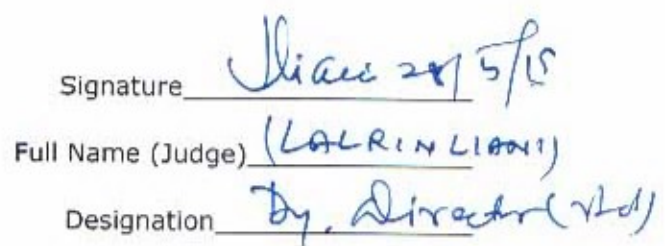 Signature Lliani 28/5/15
Full Name (Judge) (LALRINLIANI)
Designation Dy. Director (rtd)